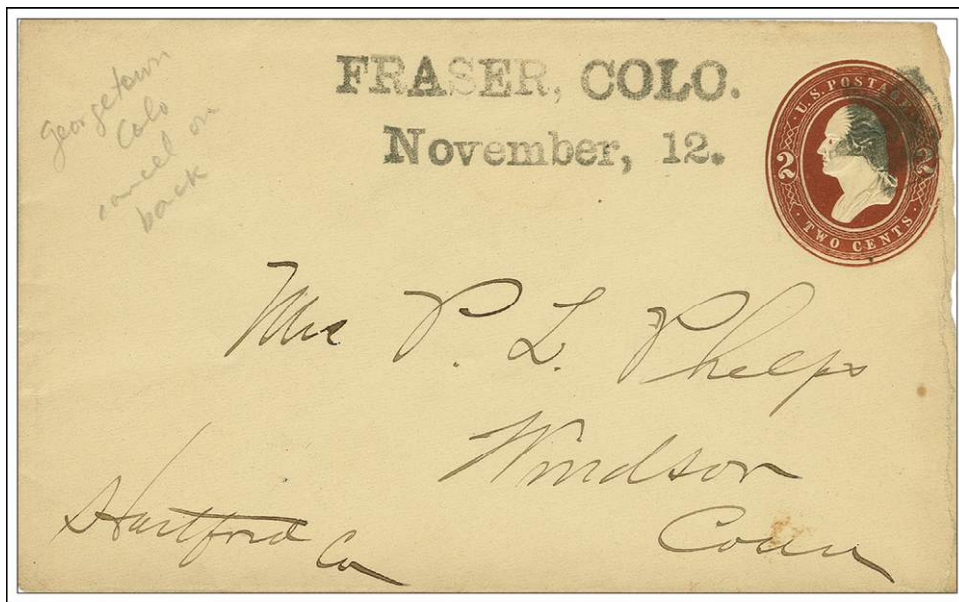 Georgetown
Colo
cancel on
back
FRASER, COLO.
November, 12.
U.S. POSTAGE
2 2
TWO CENTS
Mrs P. L. Phelps
Windsor
Conn
Hartford Co